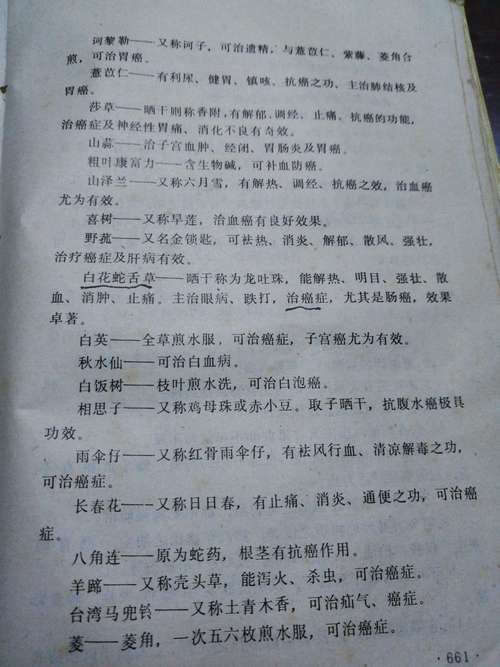 诃黎勒——又称诃子，可治遗精，与薏苡仁、紫藤、菱角合
煎，可治胃癌。
薏苡仁——有利尿、健胃、镇咳、抗癌之功，主治肺结核及
胃癌。
莎草——晒干则称香附，有解郁、调经、止痛、抗癌的功能，
治癌症及神经性胃痛、消化不良有奇效。
山蒜——治子宫血肿、经闭、胃肠炎及胃癌。
粗叶康富力——含生物碱，可补血防癌。
山泽兰——又称六月雪，有解热、调经、抗癌之效，治血癌
尤为有效。
喜树——又称旱莲，治血癌有良好效果。
野菰——又名金锁匙，可祛热、消炎、解郁、散风、强壮，
治疗癌症及肝病有效。
白花蛇舌草——晒干称为龙吐珠，能解热、明目、强壮、散
血、消肿、止痛。主治眼病、跌打，治癌症，尤其是肠癌，效果
卓著。
白英——全草煎水服，可治癌症，子宫癌尤为有效。
秋水仙——可治白血病。
白饭树——枝叶煎水洗，可治白泡癌。
相思子——又称鸡母珠或赤小豆。取子晒干，抗腹水癌极具
功效。
雨伞仔——又称红骨雨伞仔，有祛风行血、清凉解毒之功，
可治癌症。
长春花——又称日日春，有止痛、消炎、通便之功，可治癌
症。
八角连——原为蛇药，根茎有抗癌作用。
羊蹄——又称壳头草，能泻火、杀虫，可治癌症。
台湾马兜铃——又称土青木香，可治疝气、癌症。
菱——菱角，一次五六枚煎水服，可治癌症。
·661·